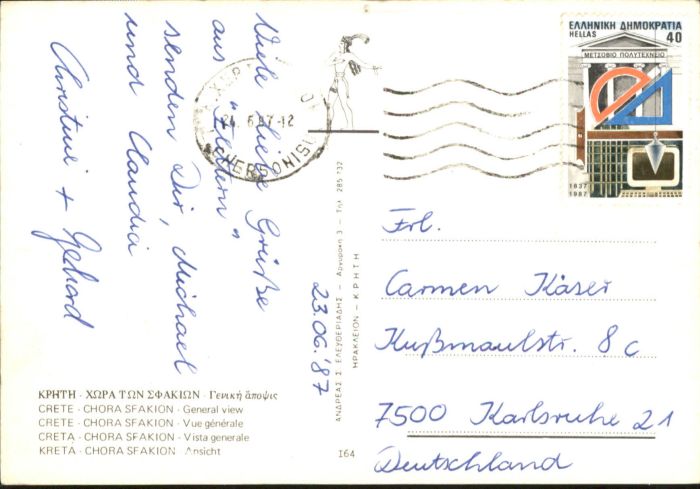 Viele liebe Grüße
aus "Fedem"
senden Dir, Michael
und Claudia
Christine + Gerhard
23.06.'87
ΧΩΡΑ
24. 6.87-12
CHERSONISI
ΕΛΛΗΝΙΚΗ ΔΗΜΟΚΡΑΤΙΑ
HELLAS 40
ΜΕΤΣΟΒΙΟ ΠΟΛΥΤΕΧΝΕΙΟ
1837
1987
Frl.
Carmen Käser
Kußmaulstr. 8c
7500 Karlsruhe 21
Deutschland
ΑΝΔΡΕΑΣ Σ. ΕΛΕΥΘΕΡΙΑΔΗΣ - Αργυράκη 3 - Τηλ. 285 832
ΗΡΑΚΛΕΙΟΝ - ΚΡΗΤΗ
ΚΡΗΤΗ · ΧΩΡΑ ΤΩΝ ΣΦΑΚΙΩΝ · Γενική ἄποψις
CRETE · CHORA SFAKION · General view
CRETE · CHORA SFAKION · Vue générale
CRETA · CHORA SFAKION · Vista generale
KRETA · CHORA SFAKION Ansicht
164